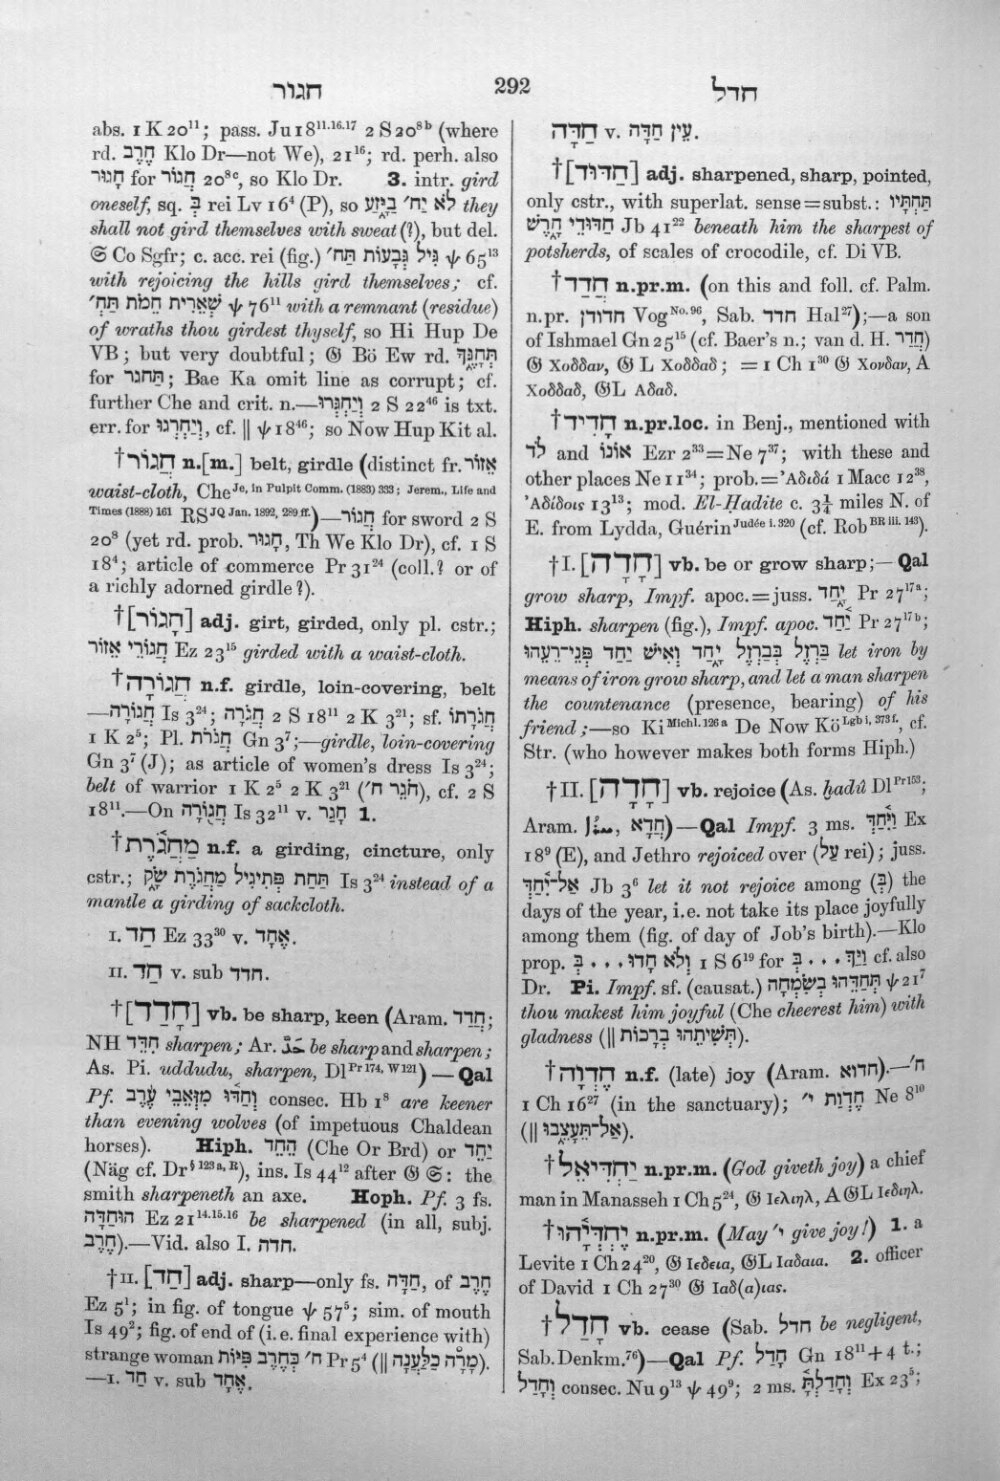 חגור
292
חדל
abs. 1 K 20¹¹; pass. Ju 18¹¹·¹⁶·¹⁷ 2 S 20⁸ᵇ (where
rd. חֶרֶב Klo Dr—not We), 21¹⁶; rd. perh. also
חָגוּר for חֲגוֹר 20⁸ᶜ, so Klo Dr. 3. intr. gird
oneself, sq. בְּ rei Lv 16⁴ (P), so לֹא יַח׳ בַּיָּזַע they
shall not gird themselves with sweat (?), but del.
𝔖 Co Sgfr; c. acc. rei (fig.) גִּיל גְּבָעוֹת תַּח׳ ψ 65¹³
with rejoicing the hills gird themselves; cf.
שְׁאֵרִית חֵמֹת תַּחְ׳ ψ 76¹¹ with a remnant (residue)
of wraths thou girdest thyself, so Hi Hup De
VB; but very doubtful; 𝔊 Bö Ew rd. תְּחָגֶּךָּ
for תחגר; Bae Ka omit line as corrupt; cf.
further Che and crit. n.—וְיַחְגְּרוּ 2 S 22⁴⁶ is txt.
err. for וְיַחְרְגוּ, cf. ‖ ψ 18⁴⁶; so Now Hup Kit al.
†חֲגוֹר n.[m.] belt, girdle (distinct fr. אֵזוֹר
waist-cloth, Che Je, in Pulpit Comm. (1883) 333; Jerem., Life and
Times (1888) 161 RS JQ Jan. 1892, 289 ff.)—חֲגוֹר for sword 2 S
20⁸ (yet rd. prob. חָגוּר, Th We Klo Dr), cf. 1 S
18⁴; article of commerce Pr 31²⁴ (coll.? or of
a richly adorned girdle?).
†[חָגוֹר] adj. girt, girded, only pl. cstr.;
חֲגוֹרֵי אֵזוֹר Ez 23¹⁵ girded with a waist-cloth.
†חֲגוֹרָה n.f. girdle, loin-covering, belt
—חֲגוֹרָה Is 3²⁴; חֲגֹרָה 2 S 18¹¹ 2 K 3²¹; sf. חֲגֹרָתוֹ
1 K 2⁵; Pl. חֲגֹרֹת Gn 3⁷;—girdle, loin-covering
Gn 3⁷ (J); as article of women's dress Is 3²⁴;
belt of warrior 1 K 2⁵ 2 K 3²¹ (חֹגֵר ח׳), cf. 2 S
18¹¹.—On חֲגוֹרָה Is 32¹¹ v. חָגַר 1.
†מַחֲגֹרֶת n.f. a girding, cincture, only
cstr.; תַּחַת פְּתִיגִיל מַחֲגֹרֶת שָׂק Is 3²⁴ instead of a
mantle a girding of sackcloth.
I. חַד Ez 33³⁰ v. אֶחָד.
II. חַד v. sub חדד.
†[חָדַד] vb. be sharp, keen (Aram. חֲדַד;
NH חִדֵּד sharpen; Ar. حَدَّ be sharp and sharpen;
As. Pi. uddudu, sharpen, Dl Pr 174, W 121)—Qal
Pf. וְחַדּוּ מִזְּאֵבֵי עֶרֶב consec. Hb 1⁸ are keener
than evening wolves (of impetuous Chaldean
horses). Hiph. הֵחֵד (Che Or Brd) or יַחֵד
(Näg cf. Dr § 123 a, R), ins. Is 44¹² after 𝔊 𝔖: the
smith sharpeneth an axe. Hoph. Pf. 3 fs.
הוּחַדָּה Ez 21¹⁴·¹⁵·¹⁶ be sharpened (in all, subj.
חֶרֶב).—Vid. also I. חדה.
†II. [חַד] adj. sharp—only fs. חַדָּה, of חֶרֶב
Ez 5¹; in fig. of tongue ψ 57⁵; sim. of mouth
Is 49²; fig. of end of (i. e. final experience with)
strange woman ח׳ כְּחֶרֶב פִּיּוֹת Pr 5⁴ (‖ מָרָה כַלַּעֲנָה).
—I. חַד v. sub אֶחָד.
עֵין חַדָּה v. חַדָּה.
†[חַדּוּד] adj. sharpened, sharp, pointed,
only cstr., with superlat. sense=subst.: תַּחְתָּיו
חַדּוּדֵי חָרֶשׂ Jb 41²² beneath him the sharpest of
potsherds, of scales of crocodile, cf. Di VB.
†חֲדַד n.pr.m. (on this and foll. cf. Palm.
n.pr. חדודן Vog No. 96, Sab. חדד Hal²⁷);—a son
of Ishmael Gn 25¹⁵ (cf. Baer's n.; van d. H. חֲדַר)
𝔊 Χοδδαν, 𝔊 L Χοδδαδ; = 1 Ch 1³⁰ 𝔊 Χονδαν, A
Χοδδαδ, 𝔊L Αδαδ.
†חָדִיד n.pr.loc. in Benj., mentioned with
לֹד and אוֹנוֹ Ezr 2³³=Ne 7³⁷; with these and
other places Ne 11³⁴; prob.=᾿Αδιδά 1 Macc 12³⁸,
᾿Αδίδοις 13¹³; mod. El-Ḥadite c. 3¼ miles N. of
E. from Lydda, Guérin Judée i. 320 (cf. Rob BR iii. 143).
†I. [חָדָה] vb. be or grow sharp;—Qal
grow sharp, Impf. apoc.=juss. יָחַד Pr 27¹⁷ᵃ;
Hiph. sharpen (fig.), Impf. apoc. יַחַד Pr 27¹⁷ᵇ;
בַּרְזֶל בְּבַרְזֶל יָחַד וְאִישׁ יַחַד פְּנֵי־רֵעֵהוּ let iron by
means of iron grow sharp, and let a man sharpen
the countenance (presence, bearing) of his
friend;—so Ki Michl. 126 a De Now Kö Lgb i, 373 f., cf.
Str. (who however makes both forms Hiph.)
†II. [חָדָה] vb. rejoice (As. ḫadû Dl Pr 153;
Aram. חֲדָא)—Qal Impf. 3 ms. וַיִּחַדְּ Ex
18⁹ (E), and Jethro rejoiced over (עַל rei); juss.
אַל־יִחַדְּ Jb 3⁶ let it not rejoice among (בְּ) the
days of the year, i.e. not take its place joyfully
among them (fig. of day of Job's birth).—Klo
prop. וְלֹא חָדוּ . . . בְּ 1 S 6¹⁹ for וַיַּךְ . . . בְּ cf. also
Dr. Pi. Impf. sf. (causat.) תְּחַדֵּהוּ בְשִׂמְחָה ψ 21⁷
thou makest him joyful (Che cheerest him) with
gladness (‖ תְּשִׁיתֵהוּ בְרָכוֹת).
†חֶדְוָה n.f. (late) joy (Aram. חדוא).—ח׳
1 Ch 16²⁷ (in the sanctuary); חֶדְוַת י״ Ne 8¹⁰
(‖ אַל־תֵּעָצֵבוּ).
†יַחְדִּיאֵל n.pr.m. (God giveth joy) a chief
man in Manasseh 1 Ch 5²⁴, 𝔊 Ιελιηλ, A 𝔊L Ιεδιηλ.
†יֶחְדְּיָהוּ n.pr.m. (May י׳ give joy!) 1. a
Levite 1 Ch 24²⁰, 𝔊 Ιεδεια, 𝔊L Ιαδαια. 2. officer
of David 1 Ch 27³⁰ 𝔊 Ιαδ(α)ιας.
†חָדַל vb. cease (Sab. חדל be negligent,
Sab. Denkm.⁷⁶)—Qal Pf. חָדַל Gn 18¹¹+4 t.;
וְחָדַל consec. Nu 9¹³ ψ 49⁹; 2 ms. וְחָדַלְתָּ Ex 23⁵;